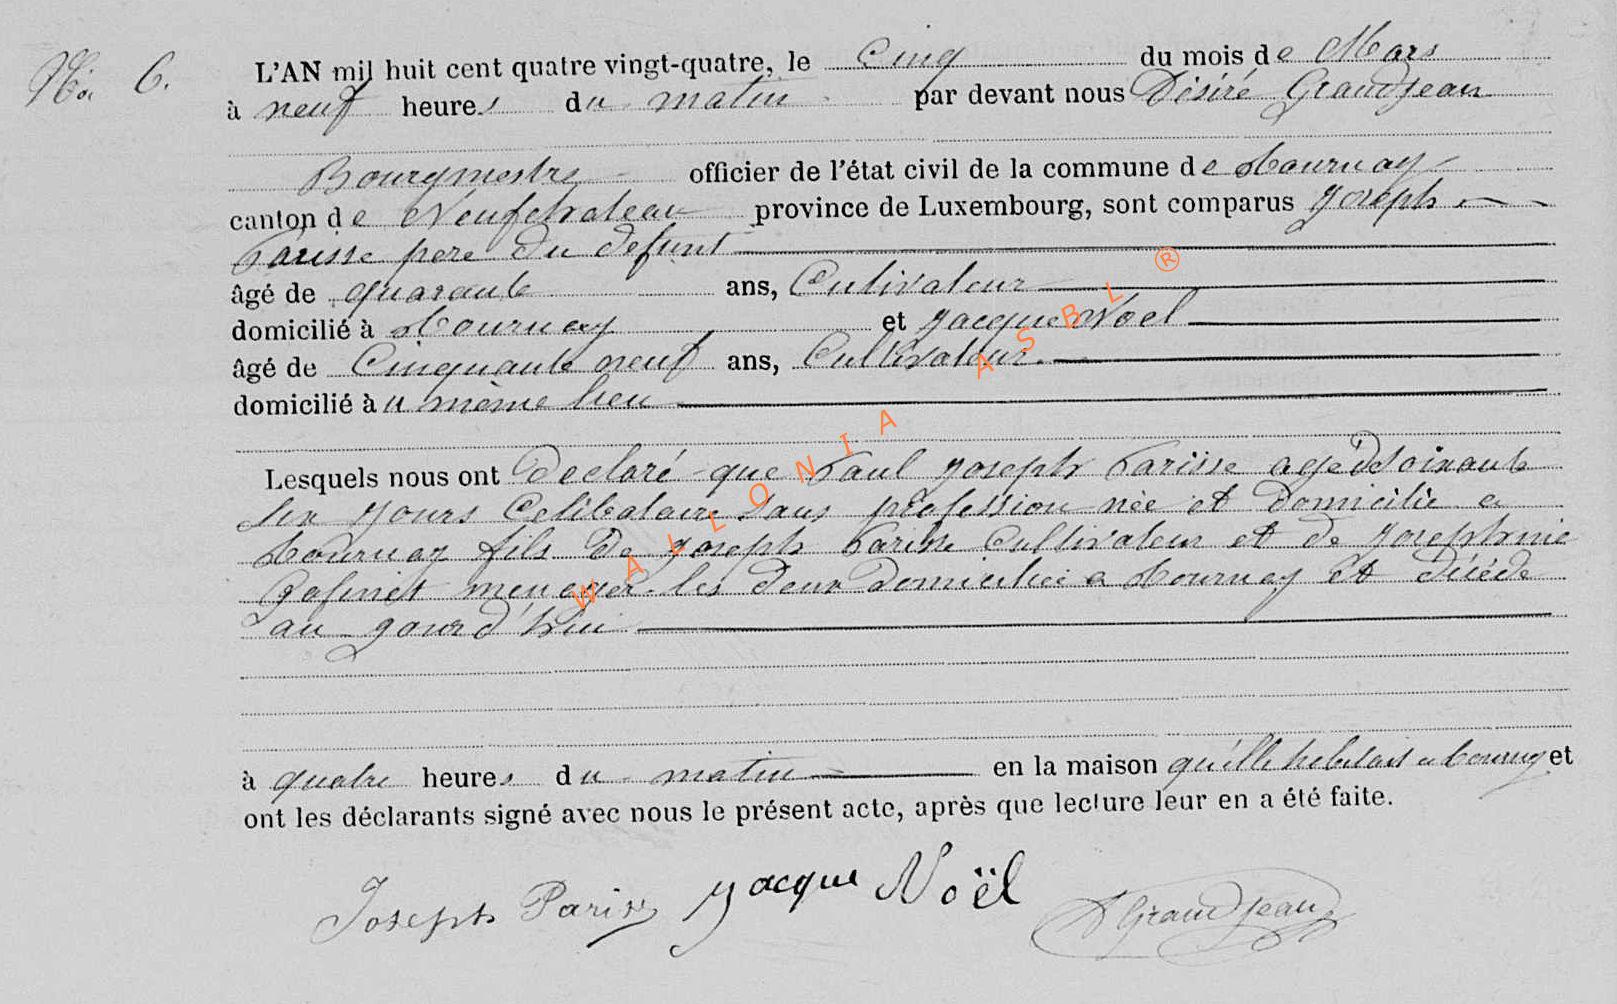 No. 6.
L'AN mil huit cent quatre vingt-quatre, le Cinq du mois de Mars
à neuf heures du matin par devant nous Désiré Grandjean
Bourgmestre officier de l'état civil de la commune de Tournay
canton de Neufchateau province de Luxembourg, sont comparus Joseph
Parisse pere du defunt
âgé de quarante ans, Cultivateur
domicilié à Tournay et Jacque Noel
âgé de Cinquante neuf ans, Cultivateur
domicilié à u même lieu
Lesquels nous ont declaré que Paul Joseph Parisse agé de soixante
six jours Celibataire sans profession née et domicilié a
Tournay fils de Joseph Parisse Cultivateur et de Josephinie
menager les deux domiciliée a Tournay et décéde
au jourd'hui
à quatre heures du matin en la maison qu'ille habitait a Tournay et
ont les déclarants signé avec nous le présent acte, après que lecture leur en a été faite.
Joseph Parisse Jacque Noël DGrandjean
WALLONIA ASBL ®